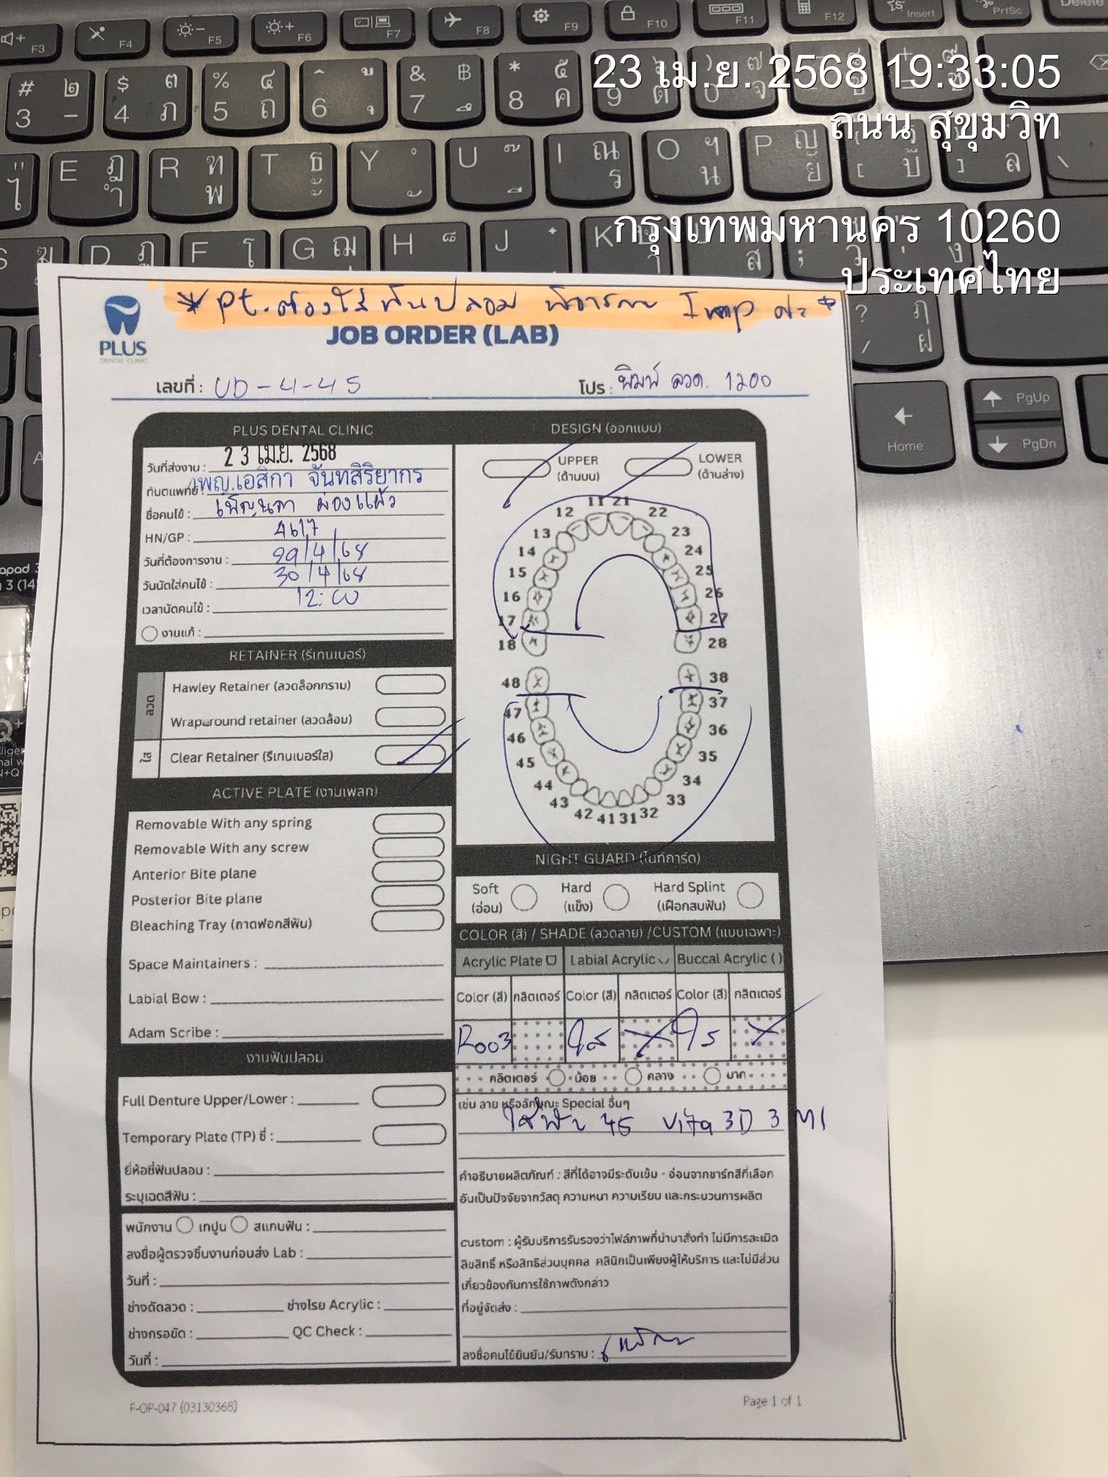 23 เม.ย. 2568 19:33:05
ถนน สุขุมวิท
กรุงเทพมหานคร 10260
ประเทศไทย
*Pt. ต้องใส่ฟันปลอม Imp
PLUS
DENTAL CLINIC
JOB ORDER (LAB)
เลขที่ : UD-4-45
โปร : พิมพ์ ลวด. 1200
PLUS DENTAL CLINIC
วันที่ส่งงาน : 23 เม.ย. 2568
ทันตแพทย์ : ทพญ.เอสิกา จันทสิริยากร
ชื่อคนไข้ : เพ็ญนภา ผ่องแผ้ว
HN/GP : 4617
วันที่ต้องการงาน : 29/4/68
วันนัดใส่คนไข้ : 30/4/68
เวลานัดคนไข้ : 12:00
งานแก้ :
RETAINER (รีเทนเนอร์)
ลวด
Hawley Retainer (ลวดล็อกกราม)
Wraparound retainer (ลวดล้อม)
ใส
Clear Retainer (รีเทนเนอร์ใส)
ACTIVE PLATE (งานเพลท)
Removable With any spring
Removable With any screw
Anterior Bite plane
Posterior Bite plane
Bleaching Tray (ถาดฟอกสีฟัน)
Space Maintainers :
Labial Bow :
Adam Scribe :
งานฟันปลอม
Full Denture Upper/Lower :
Temporary Plate (TP) ซี่ :
ยี่ห้อซี่ฟันปลอม :
ระบุเฉดสีฟัน :
พนักงาน เทปูน สแกนฟัน :
ลงชื่อผู้ตรวจชิ้นงานก่อนส่ง Lab :
วันที่ :
ช่างดัดลวด : ช่างโรย Acrylic :
ช่างกรอขัด : QC Check :
วันที่ :
DESIGN (ออกแบบ)
UPPER
(ด้านบน)
LOWER
(ด้านล่าง)
11 21
12 22
13 23
14 24
15 25
16 26
17 27
18 28
48 38
47 37
46 36
45 35
44 34
43 33
42 41 31 32
NIGHT GUARD (ไนท์การ์ด)
Soft
(อ่อน)
Hard
(แข็ง)
Hard Splint
(เฝือกสบฟัน)
COLOR (สี) / SHADE (ลวดลาย) /CUSTOM (แบบเฉพาะ)
Acrylic Plate Labial Acrylic Buccal Acrylic ( )
Color (สี) กลิตเตอร์ Color (สี) กลิตเตอร์ Color (สี) กลิตเตอร์
R003 ใส X ใส X
กลิตเตอร์ น้อย กลาง มาก
เช่น ลาย หรือลักษณะ Special อื่นๆ
ใส่ฟัน 45 Vita 3D 3 M1
คำอธิบายผลิตภัณฑ์ : สีที่ได้อาจมีระดับเข้ม - อ่อนจากชาร์ทสีที่เลือก
อันเป็นปัจจัยจากวัสดุ ความหนา ความเรียบ และกระบวนการผลิต
custom : ผู้รับบริการรับรองว่าไฟล์ภาพที่นำมาสั่งทำ ไม่มีการละเมิด
ลิขสิทธิ์ หรือสิทธิส่วนบุคคล คลินิกเป็นเพียงผู้ให้บริการ และไม่มีส่วน
เกี่ยวข้องกับการใช้ภาพดังกล่าว
ที่อยู่จัดส่ง :
ลงชื่อคนไข้ยืนยัน/รับทราบ :
F-OP-047 (03130368)
Page 1 of 1